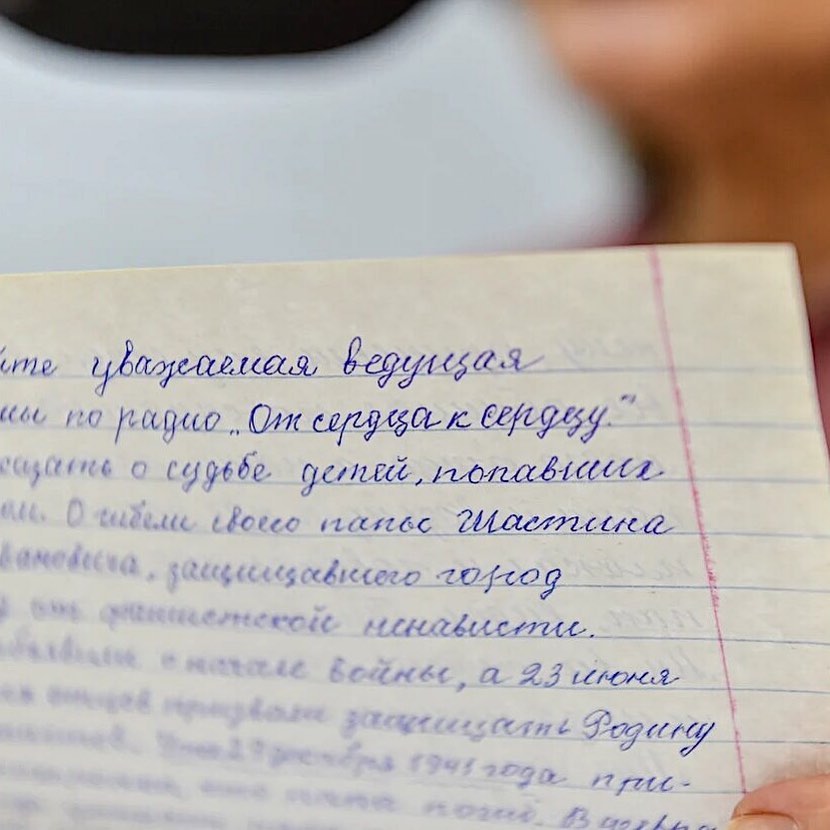 йте уважаемая ведущая
мы по радио „От сердца к сердцу."
казать о судьбе детей, попавших
ом. О гибели своего папы Шастина
вановича, защищавшего город
от фашистской ненависти.
объявили о начале войны, а 23 июня
отцов призвали защищать Родину
27 декабря 1941 года при-
что папа погиб. В